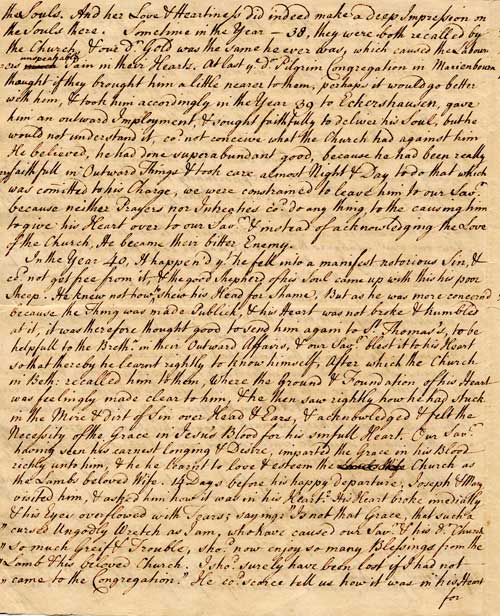 the Souls. And her Love & Heartiness did indeed make a deep Impression on
the Souls there. Sometime in the Year - 38, they were both recalled by
the Church, & our dr. Gold was the Same he ever was, which caused the Labour
ers unspeakable Pain in their Hearts. At last ye. dr. Pilgrim Congregation in Marienbourn
thought if they brought him a little nearer to them, perhaps it would go better
with him, & took him accordingly in the Year 39 to Eckershausen, gave
him an outward Imployment, & sought faithfully to deliver his Soul, but he
would not understand it, cod. not conceive what the Church had against him
He believed, he had done superabundant good, because he had been really
very faithfull in Outward Things & took care almost Night & Day to do that which
was comitted to his Charge, we were constrained to leave him to our Savr.
because neither Prayers nor Intreaties cod. do any thing, to the causing him
to give his Heart over to our Savr. & instead of acknowledging the Love
of the Church, He became their bitter Enemy.
In the Year 40, It happen'd yt. he fell into a manifest notorious Sin, &
cod. not get free from it, & the good Shepherd of his Soul came up with this his poor
Sheep. He knew not how to shew his Head for Shame, But as he was more concernd
because the Thing was made Publick, & his Heart was not broke & humbled
at it, it was therefore thought good to send him again to St. Thomas's, to be
helpfull to the Brethn. in their Outward Affairs, & our Savr. blest it to his Heart
so that thereby he learnt rightly to know himself, After which the Church
in Beth: recalled him to them, Where the ground & Foundation of his Heart
was feelingly made clear to him, & he then saw rightly how he had stuck
in the Mire & dirt of Sin over Head & Ears, & acknowledged & felt the
Necessity of the Grace in Jesus's Blood for his sinfull Heart. Our Savr.
having seen his earnest longing & Desire, imparted the Grace in his Blood
richly unto him, & he he learnt to love & esteem the Church as
the Lambs beloved Wife. 14 Days before his happy departure, Joseph & Mary
visited him, & asked him how it was in his Heart. His Heart broke immedially
& his Eyes overflowed with Tears; saying; "Is not that Grace, that such a
" cursed Ungodly Wretch as I am, who have caused our Savr. & his dr. Church
" so much Greif & Trouble, Shod. now enjoy so many Blessings from the
" Lamb & his beloved Church. I shod. surely have been lost if I had not
" came to the Congregation." He cod. scarce tell us how it was in his Heart
for